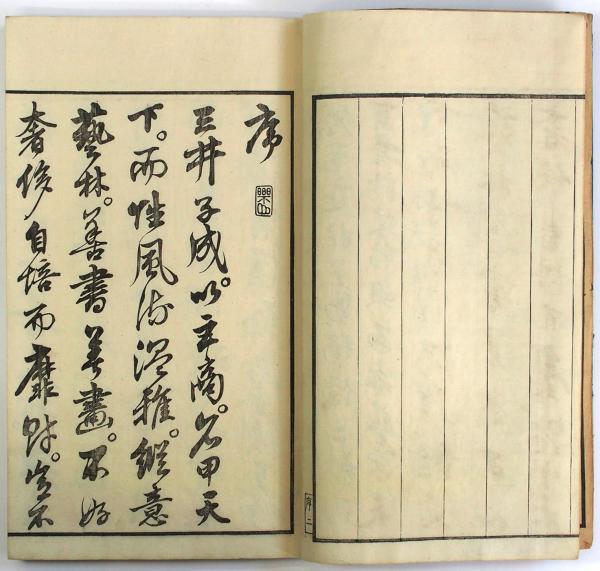 序二
序
樂山
三井子成。以商。名甲天
下。而性風流溫雅。縱意
藝林。善書善畫。不好
奢侈自培而靡財。豈不